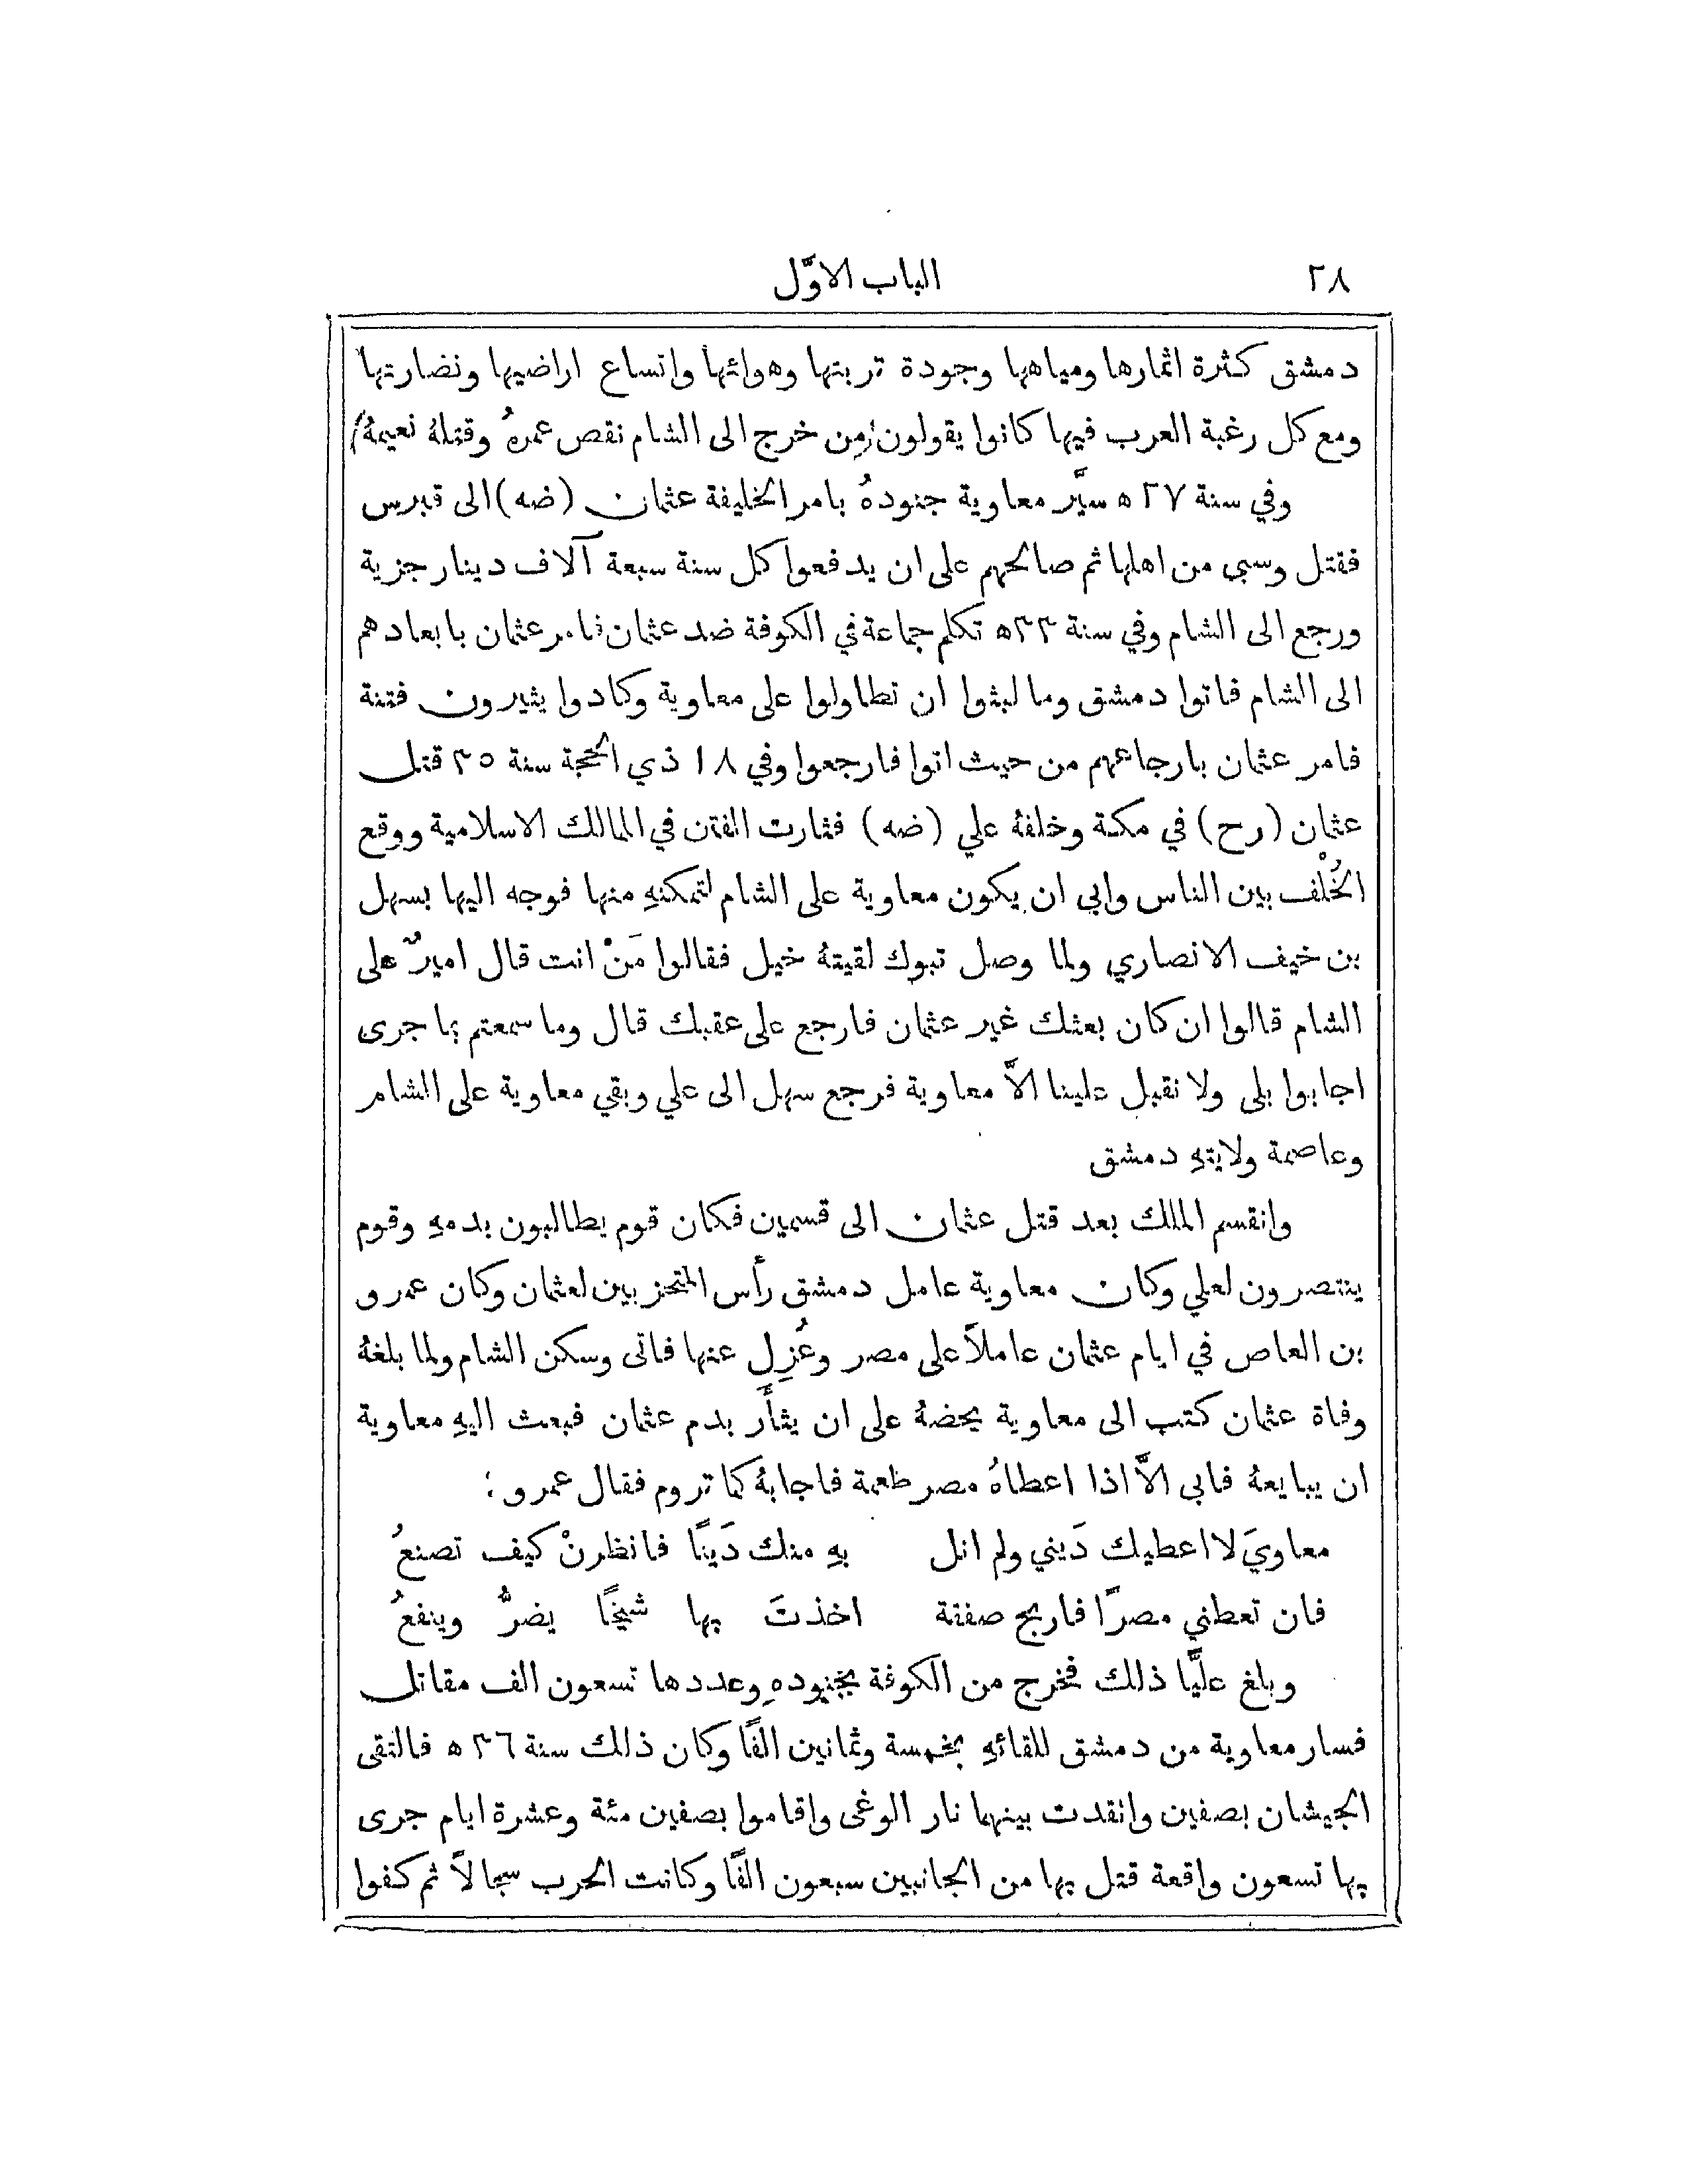 ٢٨
الباب الاوَّل
دمشق كثرة اثمارها ومياهها وجودة تربتها وهوائها واتساع اراضيها ونضارتها
ومع كل رغبة العرب فيها كانوا يقولون من خرج الى الشام نقص عمرهُ وقتلهُ نعيمهُ
وفي سنة ٢٧ ه سيَّر معاوية جنودهُ بامر الخليفة عثمان (ضه) الى قبرس
فقتل وسبى من اهلها ثم صالحهم على ان يدفعوا كل سنة سبعة آلاف دينار جزية
ورجع الى الشام وفي سنة ٣٣ ه تكلم جماعة في الكوفة ضد عثمان فامر عثمان بابعادهم
الى الشام فاتوا دمشق وما لبثوا ان تطاولوا على معاوية وكادوا يثيرون فتنة
فامر عثمان بارجاعهم من حيث اتوا فارجعوا وفي ١٨ ذي الحجة سنة ٣٥ قتل
عثمان (رح) في مكة وخلفهُ علي (ضه) فثارت الفتن في الممالك الاسلامية ووقع
الخُلْف بين الناس وابى ان يكون معاوية على الشام لتمكنهِ منها فوجه اليها بسهل
بن خيف الانصاري ولما وصل تبوك لقيتهُ خيل فقالوا مَنْ انت قال اميرٌ على
الشام قالوا ان كان بعثك غير عثمان فارجع على عقبك قال وما سمعتم بما جرى
اجابوا بلى ولا نقبل علينا الاَّ معاوية فرجع سهل الى علي وبقي معاوية على الشام
وعاصمة ولايتهِ دمشق
وانقسم الملك بعد قتل عثمان الى قسمين فكان قوم يطالبون بدمهِ وقوم
ينتصرون لعلي وكان معاوية عامل دمشق رأس المتحزبين لعثمان وكان عمرو
بن العاص في ايام عثمان عاملاً على مصر وعُزِل عنها فاتى وسكن الشام ولما بلغهُ
وفاة عثمان كتب الى معاوية يحضهُ على ان يثأَر بدم عثمان فبعث اليهِ معاوية
ان يبايعهُ فابى الاَّ اذا اعطاهُ مصر طعمة فاجابهُ كما تروم فقال عمرو:
معاويَ لا اعطيك دَيني ولم انل بهِ منك دَينًا فانظرنْ كيف تصنعُ
فان تعطني مصرًا فاربح صفقة اخذتَ بها شيخًا يضرُّ وينفعُ
وبلغ عليًّا ذلك فخرج من الكوفة بجنودهِ وعددها تسعون الف مقاتل
فسار معاوية من دمشق للقائهِ بخمسة وثمانين الفًا وكان ذلك سنة ٣٦ ه فالتقى
الجيشان بصفين وانقدت بينهما نار الوغى واقاموا بصفين مئة وعشرة ايام جرى
بها تسعون واقعة قتل بها من الجانبين سبعون الفًا وكانت الحرب سجالاً ثم كفوا